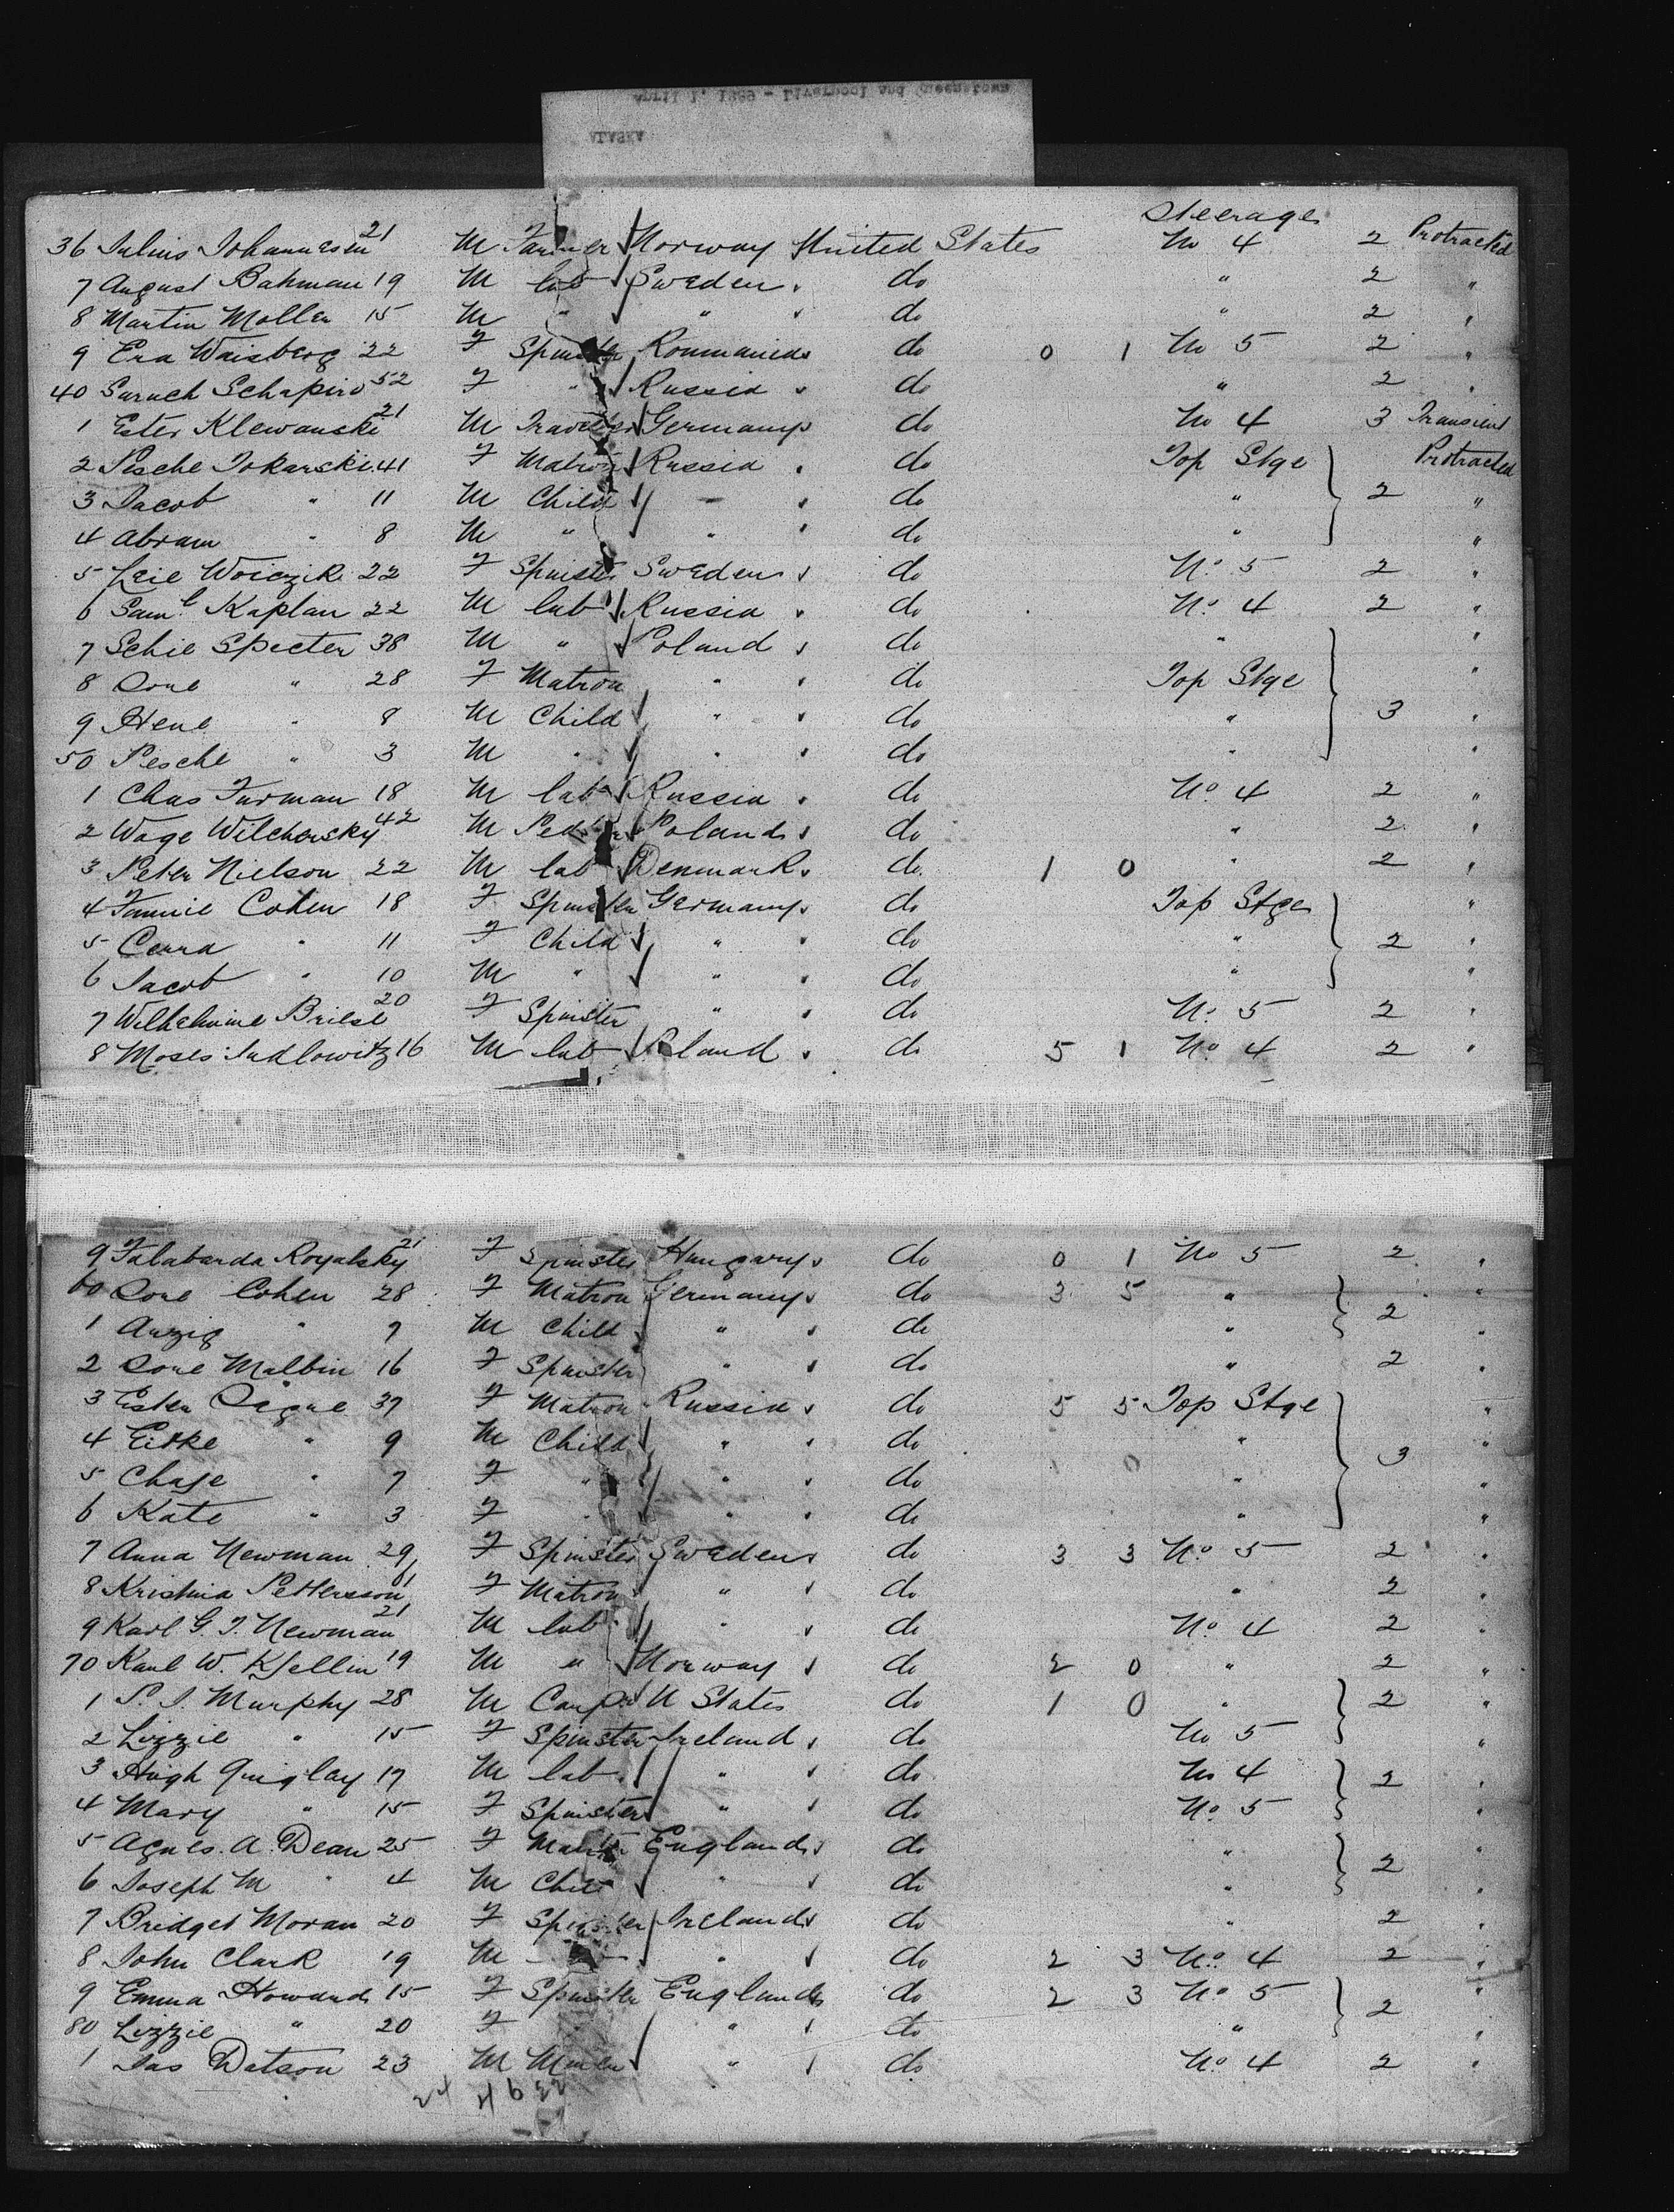 April 1, 1889 - Liverpool and Queenstown
ALASKA
Steerage
36 Julius Johannesen 21 M Farmer Norway United States No 4 2 Protracted
7 August Bahman 19 M lab Sweden do " 2 "
8 Martin Moller 15 M " " do " 2 "
9 Era Waisberg 22 F Spinster Roumania do 0 1 No 5 2 "
40 Saruch Schapiro 52 F " Russia do " 2 "
1 Ester Klewanski 21 M Traveller Germany do No 4 3 Transient
2 Pesche Tokarski 41 F Matron Russia do Top Stge Protracted
3 Jacob " 11 M Child " do " 2 "
4 Abram " 8 M " " do " "
5 Zeie Woiczik 22 F Spinster Sweden do No 5 2 "
6 Saml Kaplan 22 M lab Russia do No 4 2 "
7 Schie Specter 38 M " Poland do " "
8 Dore " 28 F Matron " do Top Stge "
9 Hene " 8 M Child " do " 3 "
50 Pesche " 3 M " " do " "
1 Chas Furman 18 M lab Russia do No 4 2 "
2 Woge Wilchersky 42 M Pedlar Poland do " 2 "
3 Peter Nielson 22 M lab Denmark do 1 0 " 2 "
4 Fannie Cohen 18 F Spinster Germany do Top Stge "
5 Ceara " 11 F Child " do " 2 "
6 Jacob " 10 M " " do " "
7 Wilhelmine Briese 20 F Spinster " do No 5 2 "
8 Moses Judlowitz 16 M lab Poland do 5 1 No 4 2 "
9 Falabarda Royalsky 21 F Spinster Hungary do 0 1 No 5 2 "
60 Dore Cohen 28 F Matron Germany do 3 5 " "
1 Auzig " 7 M Child " do " 2 "
2 Dore Malbin 16 F Spinster " do " 2 "
3 Ester Digne 37 F Matron Russia do 5 5 Top Stge "
4 Eitke " 9 M Child " do " 3 "
5 Chaje " 7 F " " do 0 " "
6 Kate " 3 F " " do " "
7 Anna Newman 29 F Spinster Sweden do 3 3 No 5 2 "
8 Kristina Pettersson 61 F Matron " do " 2 "
9 Karl G. J. Newman 21 M lab " do No 4 2 "
70 Karl W. Kjellin 19 M " Norway do 2 0 " 2 "
1 P. J. Murphy 28 M Carp U States do 1 0 " 2 "
2 Lizzie " 15 F Spinster Ireland do No 5 "
3 Hugh Quigley 17 M lab " do No 4 2 "
4 Mary " 15 F Spinster " do No 5 "
5 Agnes. A. Dean 25 F Matron England do " 2 "
6 Joseph M " 4 M Child " do " "
7 Bridget Moran 20 F Spinster Ireland do " 2 "
8 John Clark 19 M " do 2 3 No 4 2 "
9 Emma Howard 15 F Spinster England do 2 3 No 5 2 "
80 Lizzie " 20 F " " do " "
1 Jas Watson 23 M Miner " do No 4 2 "
24 46 22